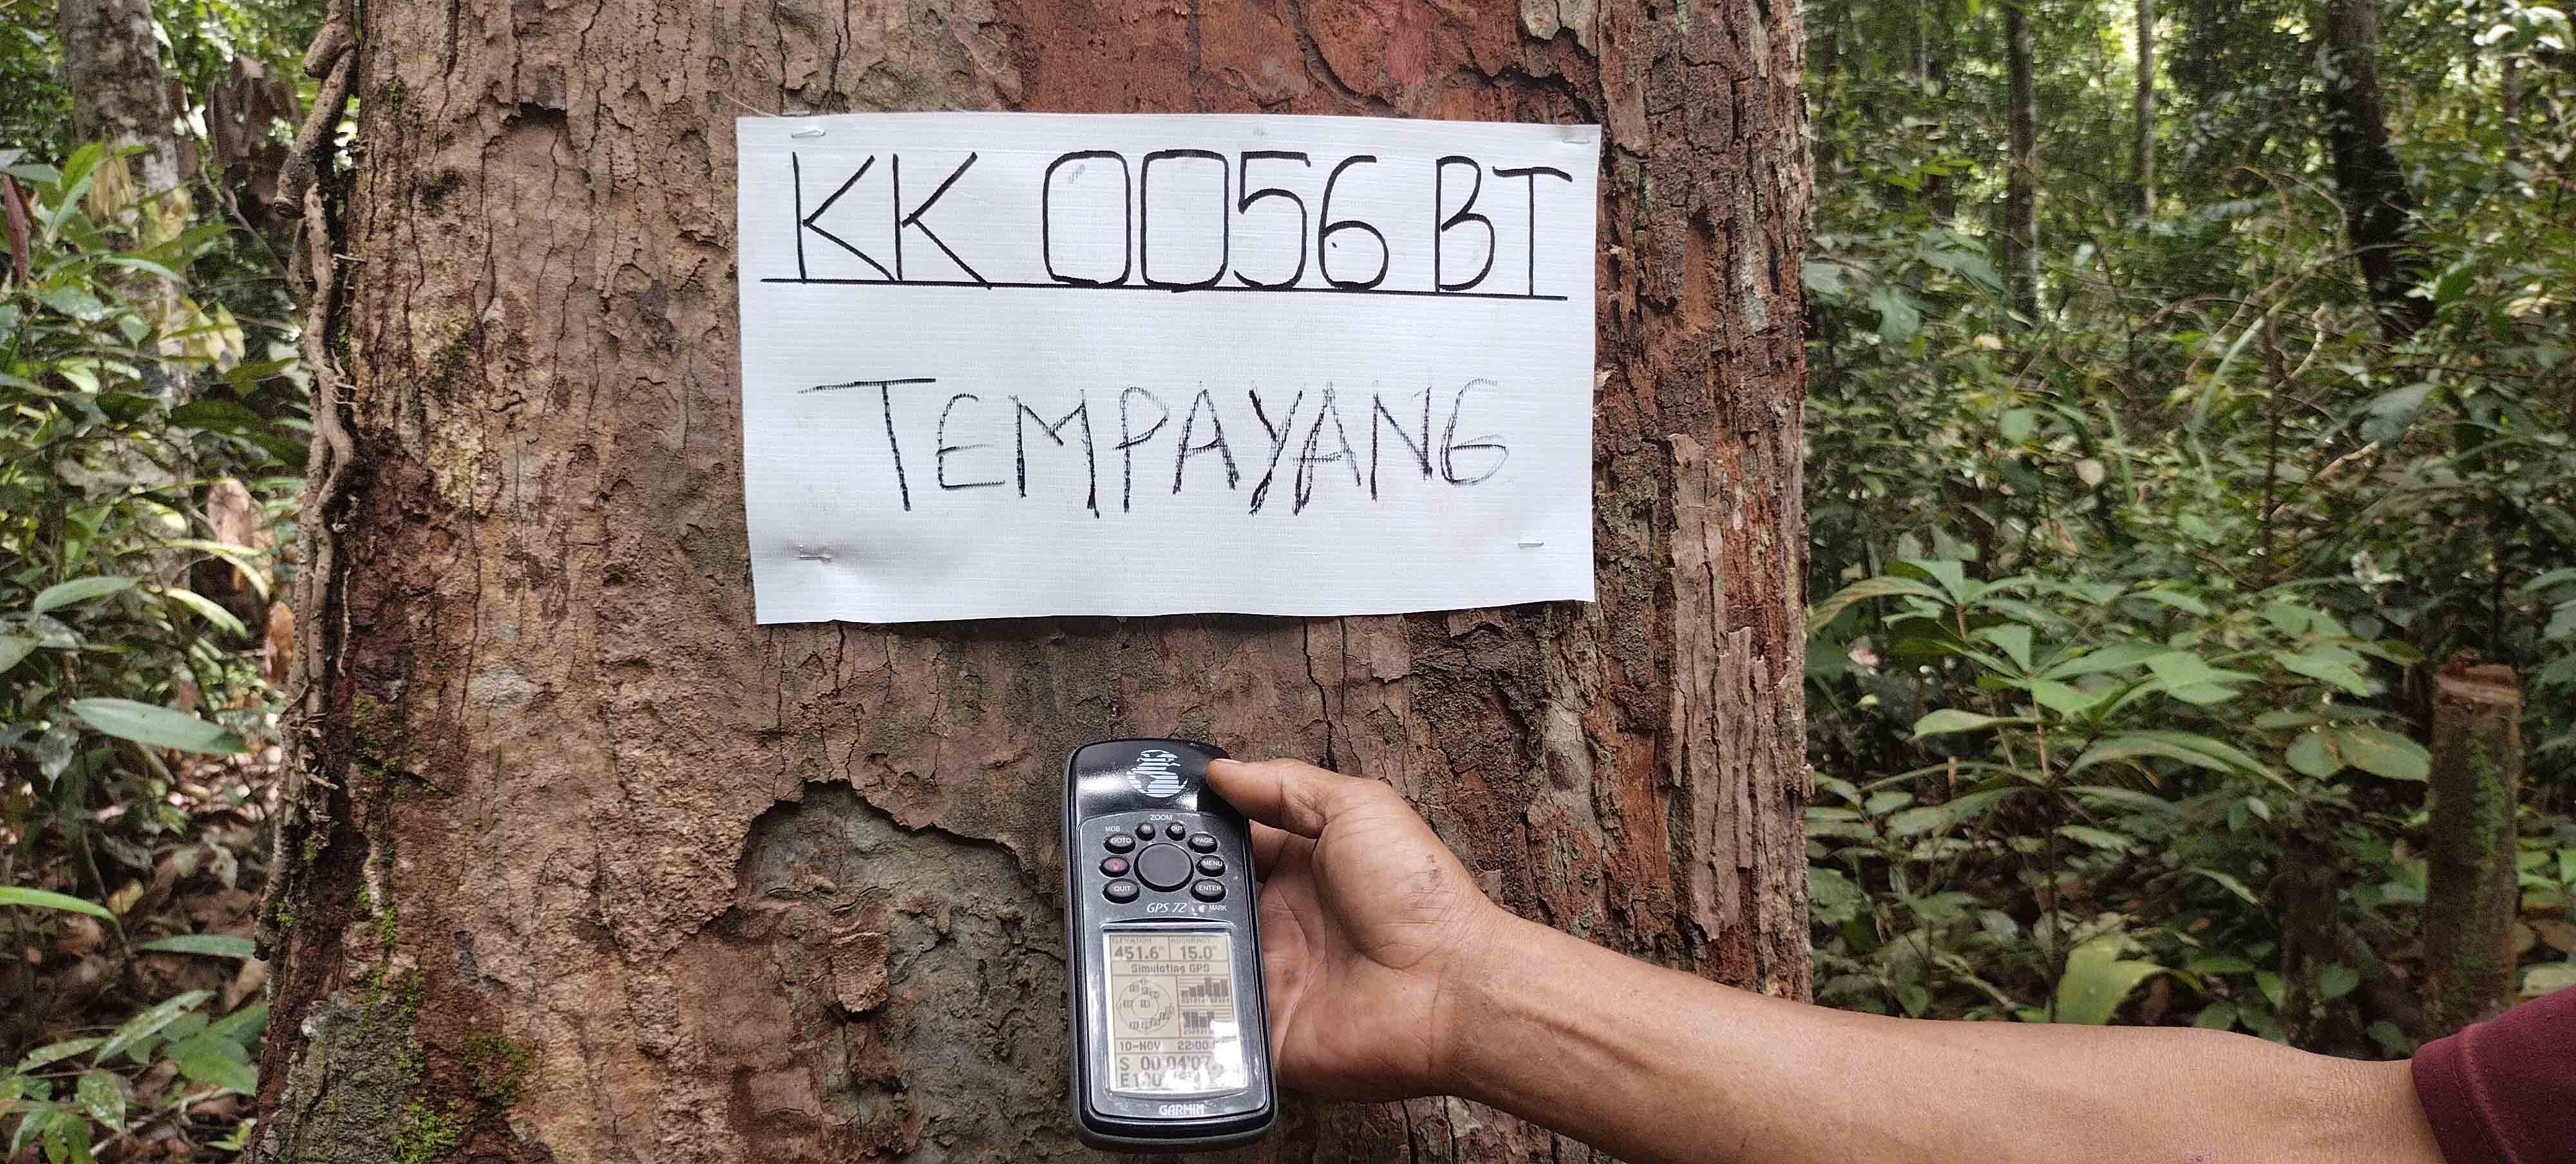 KK 0056 BT
TEMPAYANG
ZOOM
MOB IN OUT
GOTO PAGE
MENU
QUIT ENTER
GPS 72 MARK
ELEVATION ACCURACY
451.6 15.0
Simulating GPS
10-NOV 22:00
S 00°04'07
GARMIN